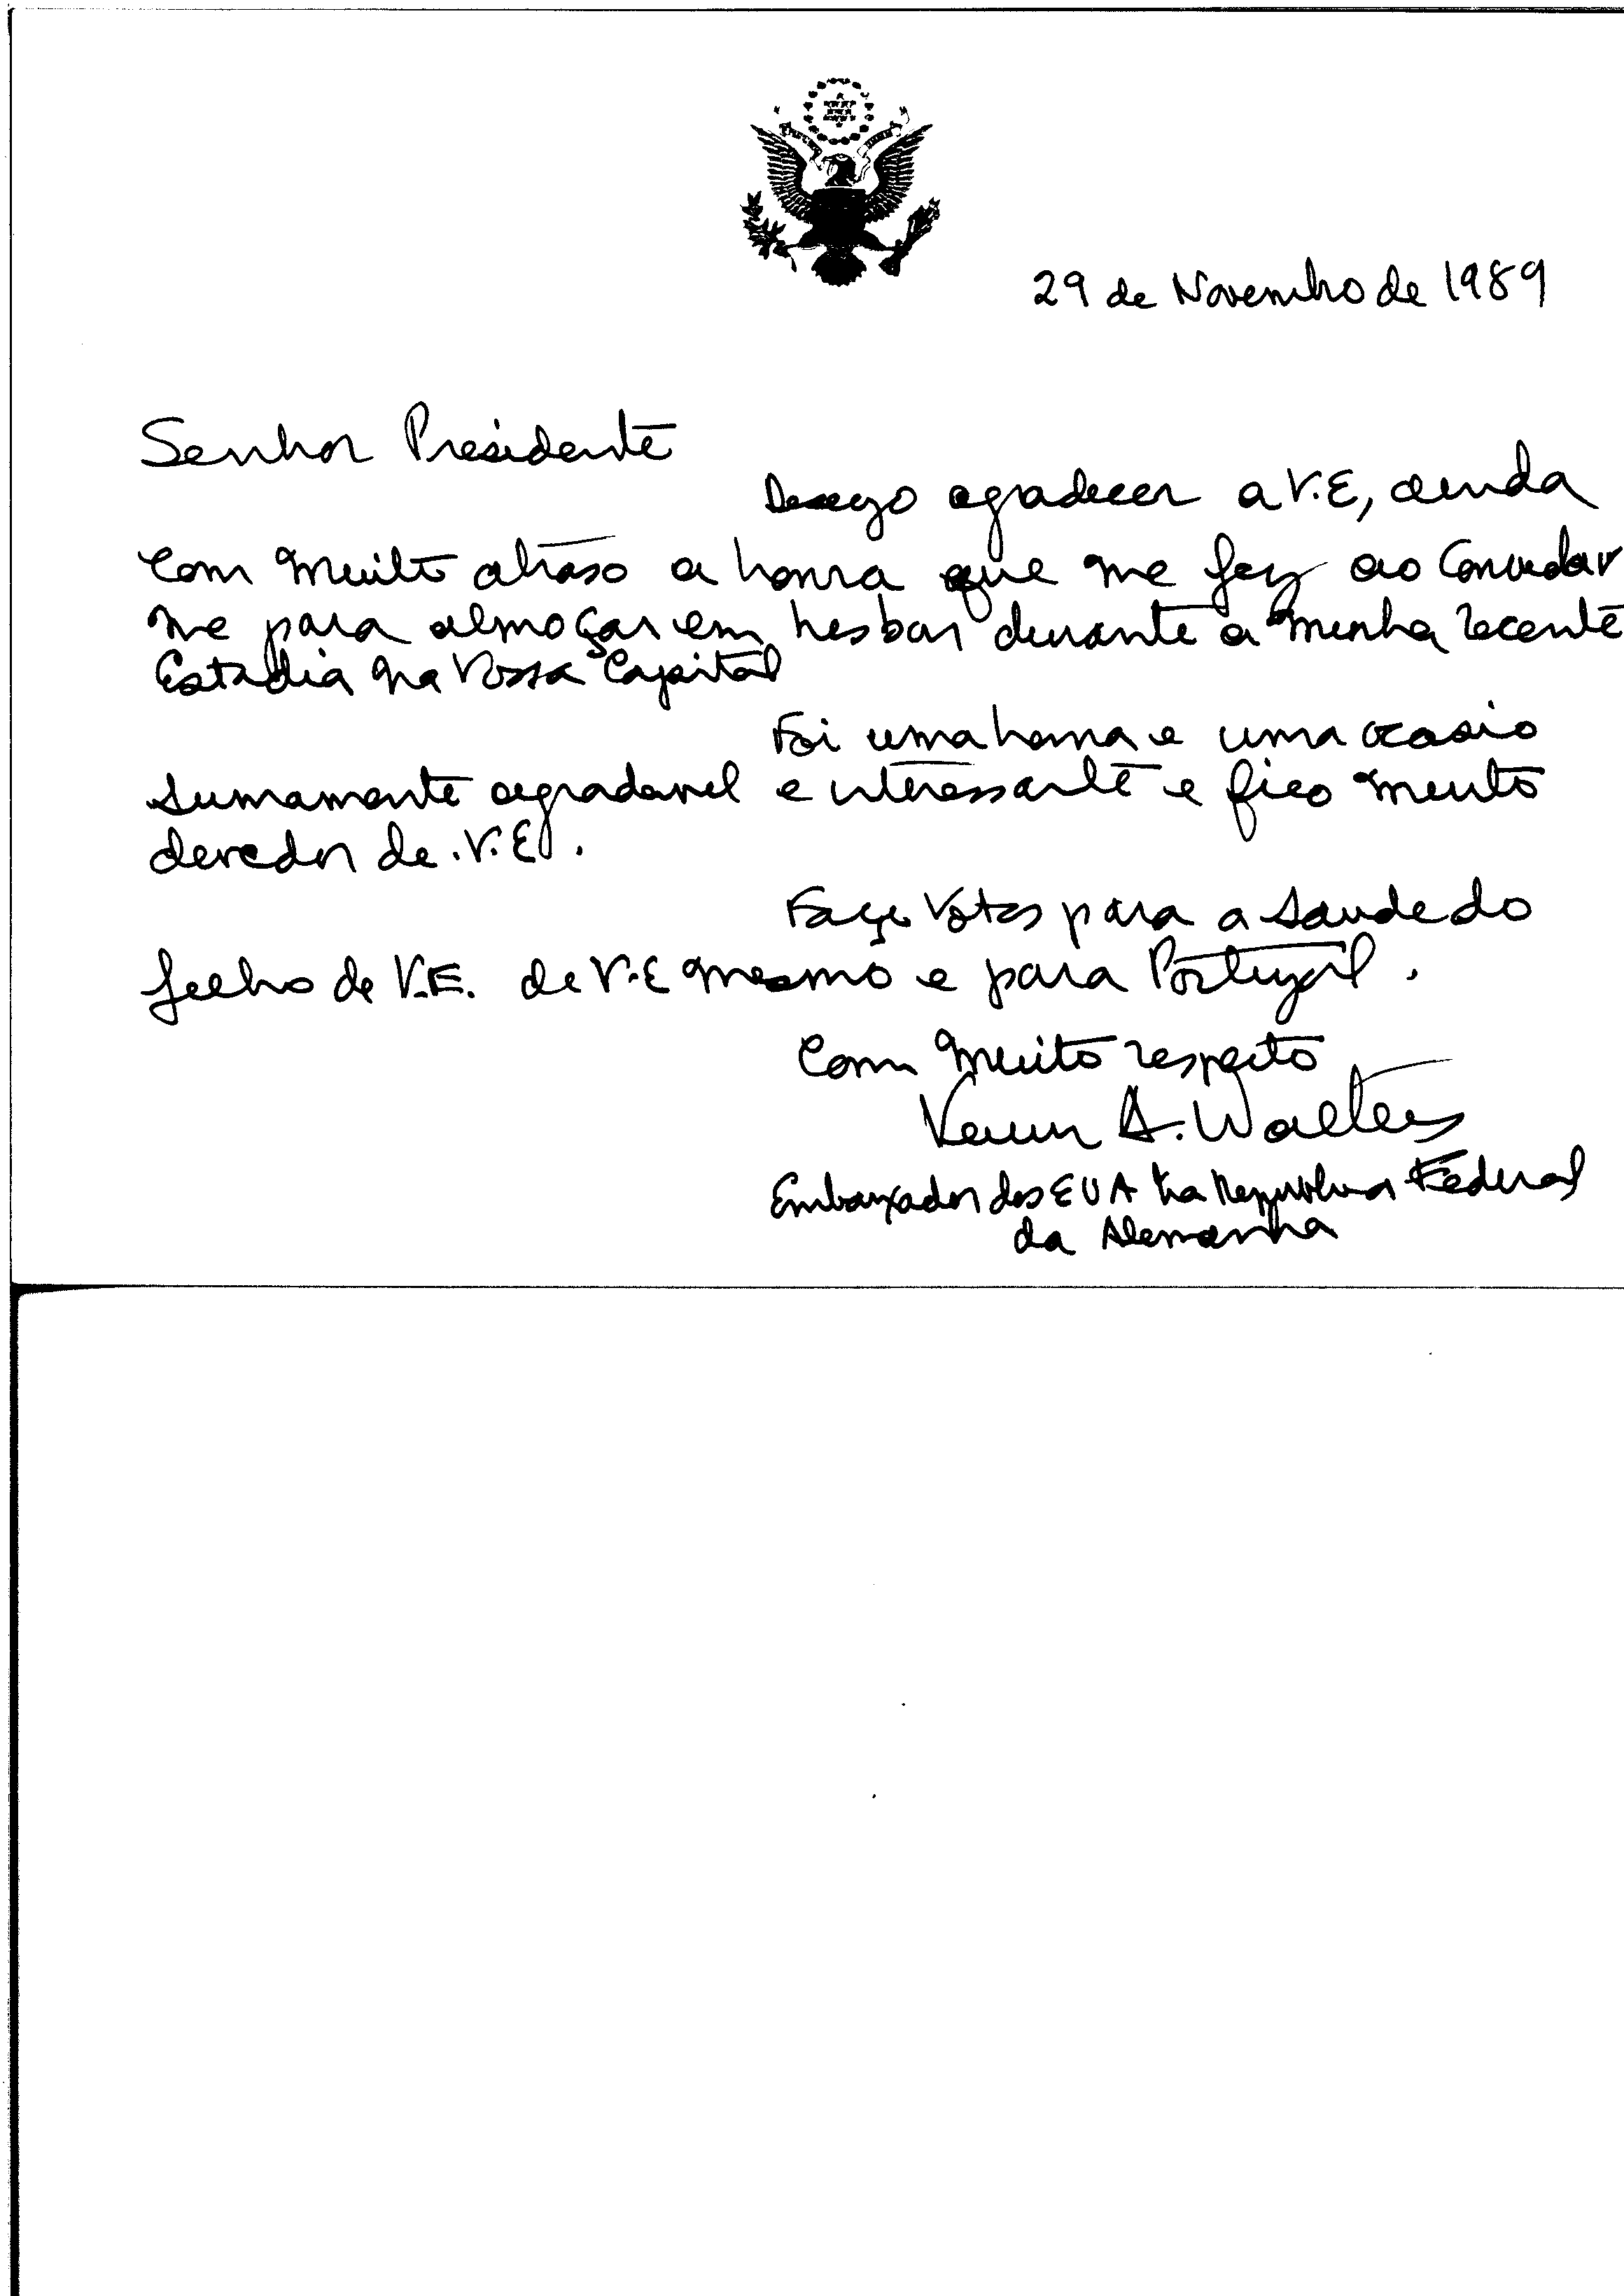 29 de Novembro de 1989
Senhor Presidente
Desejo agradecer a V.E, ainda
com muito atraso a honra que me fez ao convidar
me para almoçar em Lisboa durante a minha recente
Estadia na Vossa Capital
Foi uma honra e uma ocasio
sumamente agradavel e interessante e fico muito
devedor de V.E.
Faço votos para a saude do
filho de V.E. de V.E mesmo e para Portugal.
Com muito respeito
Vernon A. Walters
Embaixador dos EUA na Republica Federal
da Alemanha